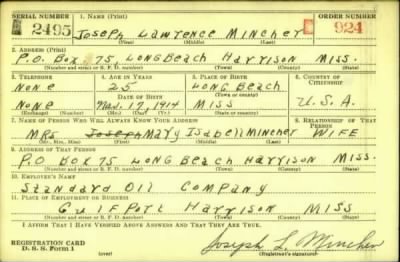 SERIAL NUMBER 1. NAME (Print) ORDER NUMBER
2495 Joseph Lawrence Mincher 924
(First) (Middle) (Last)
2. ADDRESS (Print)
P.O. Box 75, Long Beach Harrison Miss.
(Number and street or R. F. D. number) (Town) (County) (State)
3. TELEPHONE 4. AGE IN YEARS 5. PLACE OF BIRTH 6. COUNTRY OF CITIZENSHIP
None 25 Long Beach
DATE OF BIRTH (Town or county)
None Nov. 17, 1914 Miss U.S.A.
(Mo.) (Day) (Yr.) (State or country)
7. NAME OF PERSON WHO WILL ALWAYS KNOW YOUR ADDRESS 8. RELATIONSHIP OF THAT PERSON
Mrs Joseph Mary Isabell Mincher Wife
(Mr., Mrs., Miss) (First) (Middle) (Last)
9. ADDRESS OF THAT PERSON
P.O Box 75 Long Beach Harrison Miss.
(Number and street or R. F. D. number) (Town) (County) (State)
10. EMPLOYER'S NAME
Standard Oil Company
11. PLACE OF EMPLOYMENT OR BUSINESS
Gulfport Harrison Miss
(Number and street or R. F. D. number) (Town) (County) (State)
I AFFIRM THAT I HAVE VERIFIED ABOVE ANSWERS AND THAT THEY ARE TRUE.
REGISTRATION CARD
D. S. S. Form 1 Joseph L. Mincher
(Registrant's signature)